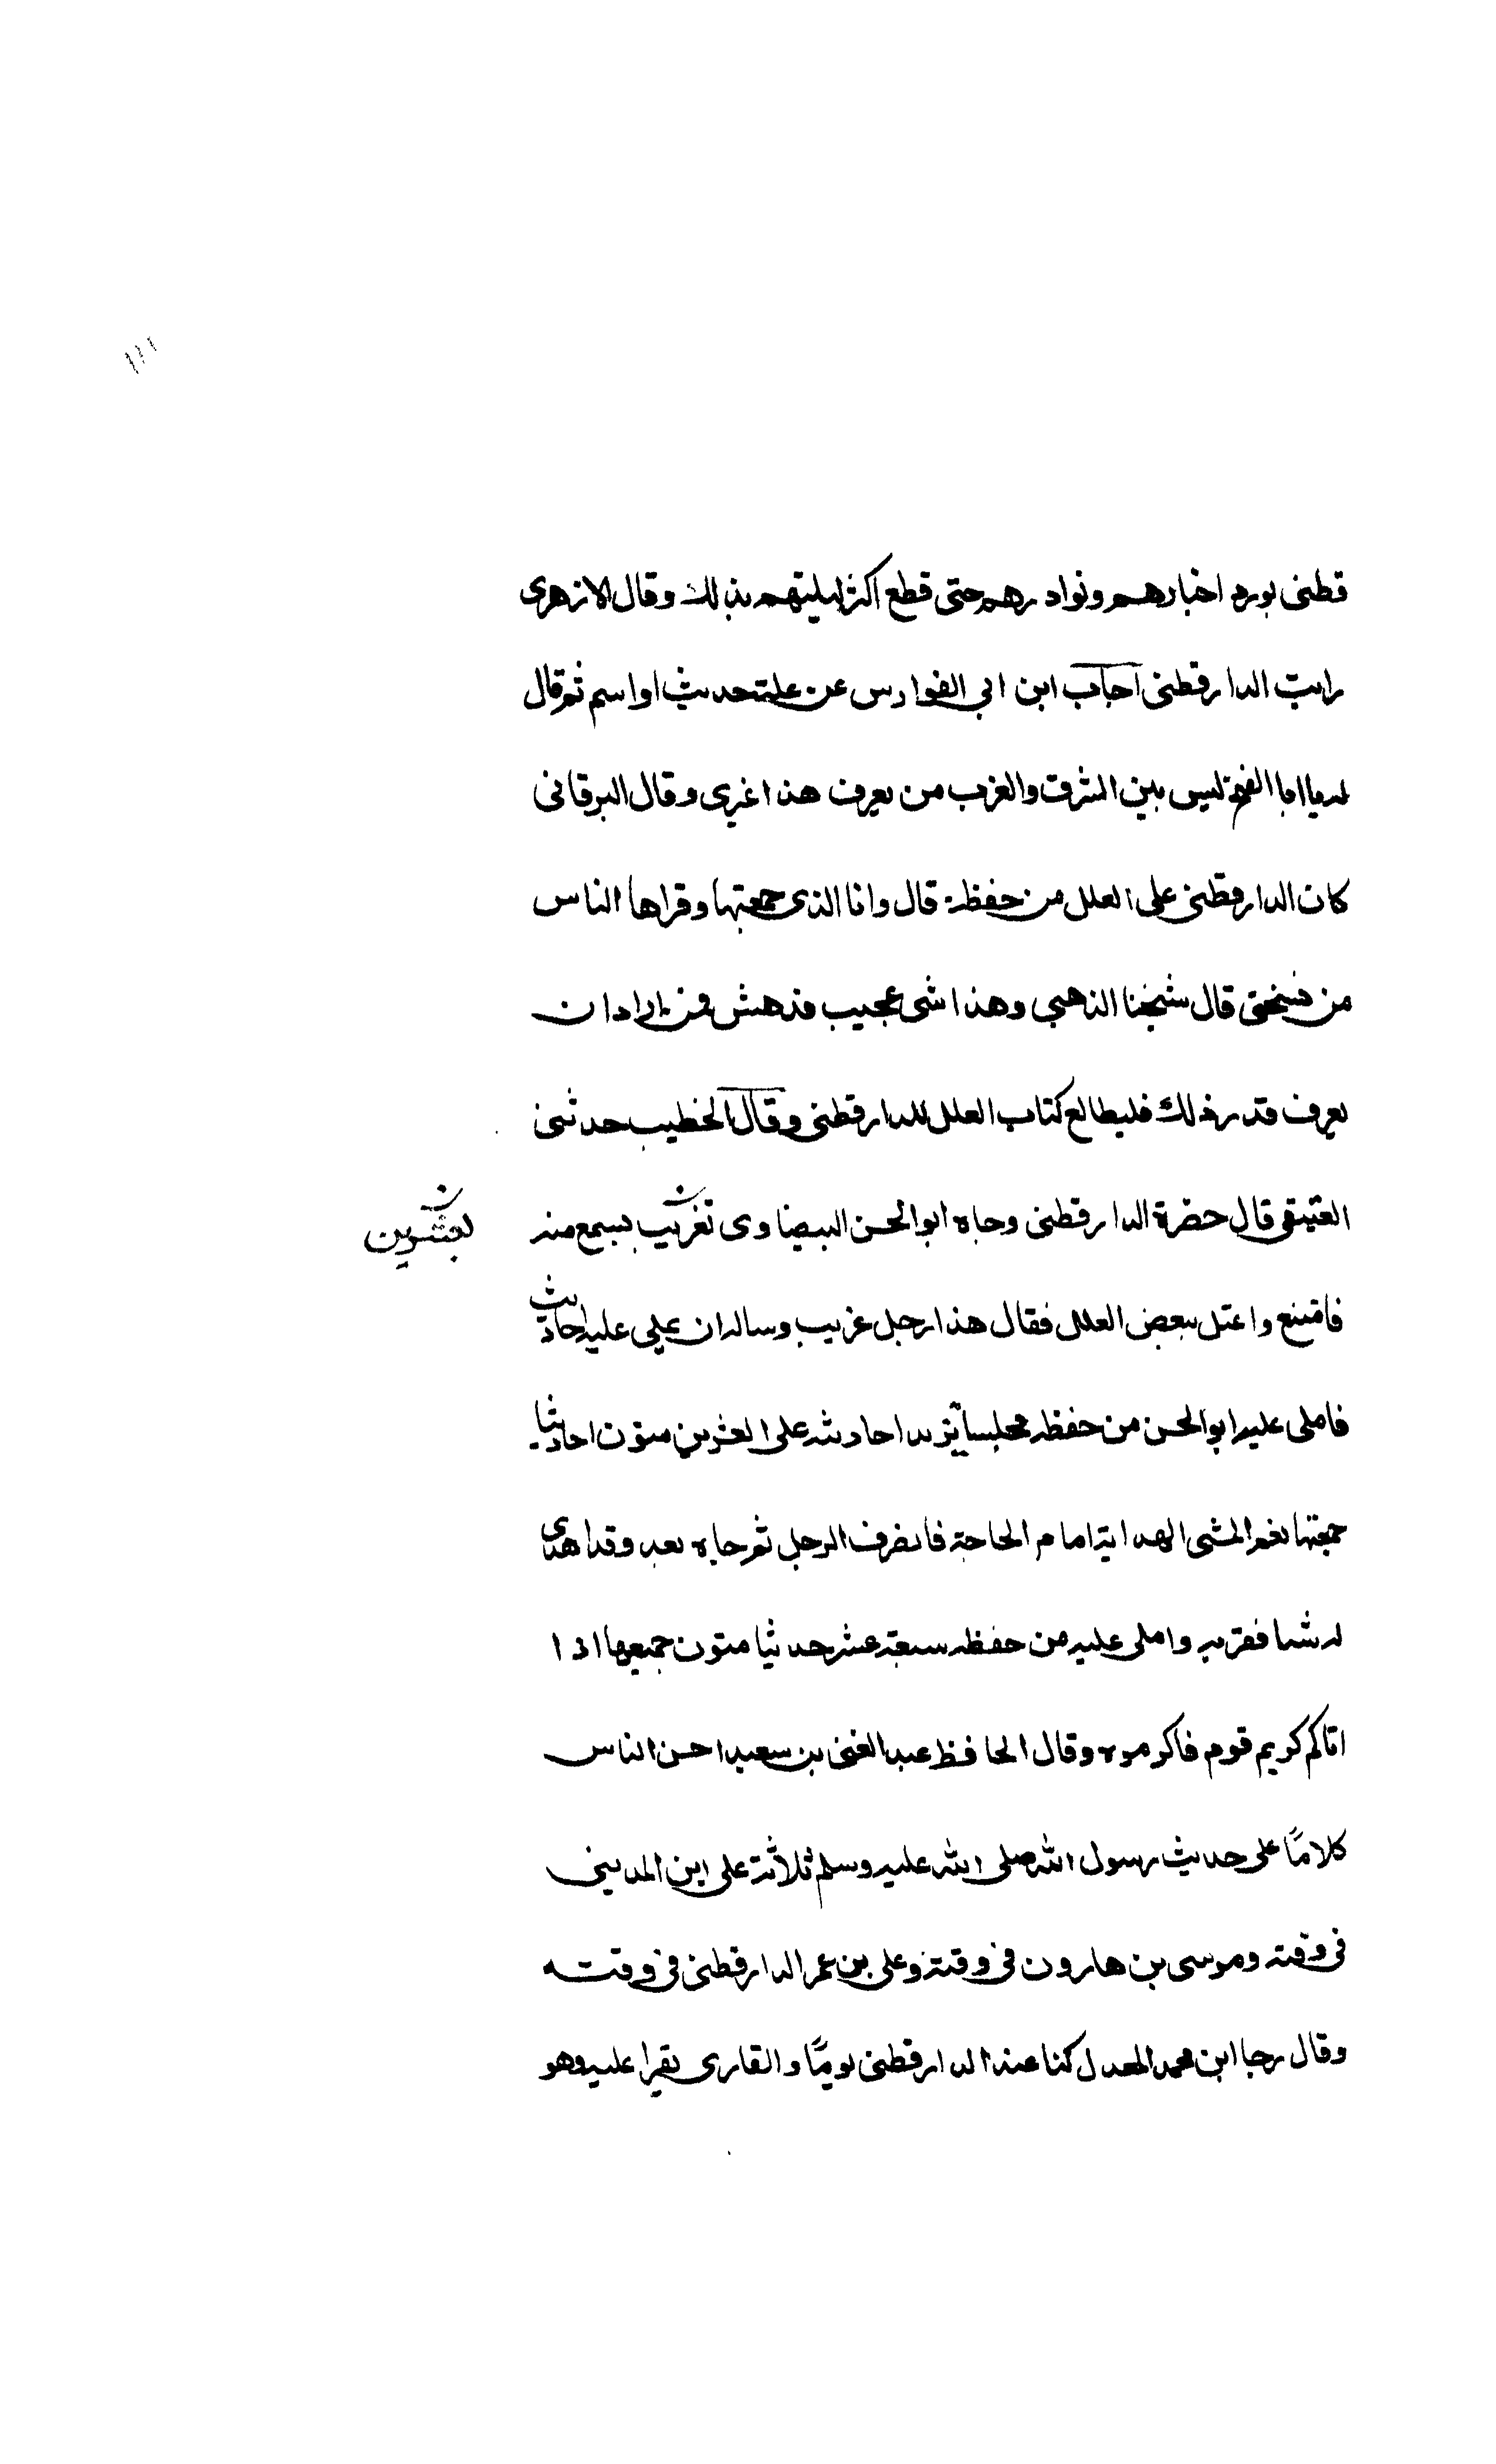 قطنى يورد اخبارهم ونوادرهم حتى قطع اكثر ليلتهم بذلك وقال الازهرى
رايت الدارقطنى اجاب ابن ابي الفوارس عن علة حديث او اسم ثم قال
له يا ابا الفتح ليس بين الشرق والغرب من يعرف هذا غيرى وقال البرقانى
كان الدارقطنى على العلل من حفظه قال وانا الذى جمعتها وقراها الناس
من نسختى قال شيخنا الذهبى وهذا شى عجيب مدهش فمن اراد ان
يعرف قدر ذلك فليطالع كتاب العلل للدارقطنى وقال الخطيب حدثنى
العتيقى قال حضرة الدارقطنى وجاه ابو الحسن البيضاوى تغريب يسمع منه
بعشرين
فامتنع واعتل ببعض العلل فقال هذا رجل غريب وساله ان يملى عليه احاديث
فاملى عليه ابو الحسن من حفظه مجلسا يزيد احاديثه على العشرين متون احاديثا
جمعتها نعم المشى الهداية امام الحاجة فانصرف الرجل ثم جاه بعد وقد اهدى
له شيا فقربه واملى عليه من حفظه سبعة عشر حديثا متون جميعها اذا
اتاكم كريم قوم فاكرموه وقال الحافظ عبد الغنى بن سعيد احسن الناس
كلامًا على حديث رسول الله صلى الله عليه وسلم ثلاثة على ابن المدينى
فى وقته وموسى بن هارون فى وقته وعلى بن عمر الدارقطنى فى وقته
وقال رجا ابن محمد المعدل كنا عند الدارقطنى يومًا والقارى يقرا عليه وهو